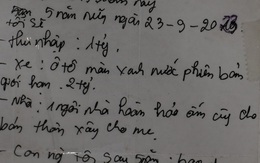 năm này
5 năm nữa ngày 23-9-20
tôi sẽ
- thu nhập : 1 tỷ.
- xe : Ô tô màu xanh nước phiên bản
giới hạn : 2 tỷ.
- Nhà : 1 ngôi nhà hoàn hảo ấm cúng cho
bản thân xây cho mẹ.
- Con